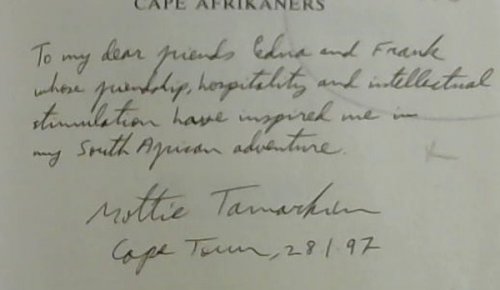 CAPE AFRIKANERS
To my dear friends Edna and Frank
whose friendship, hospitality and intellectual
stimulation have inspired me in
my South African adventure.
Mottie Tamarkin
Cape Town, 28/1/97